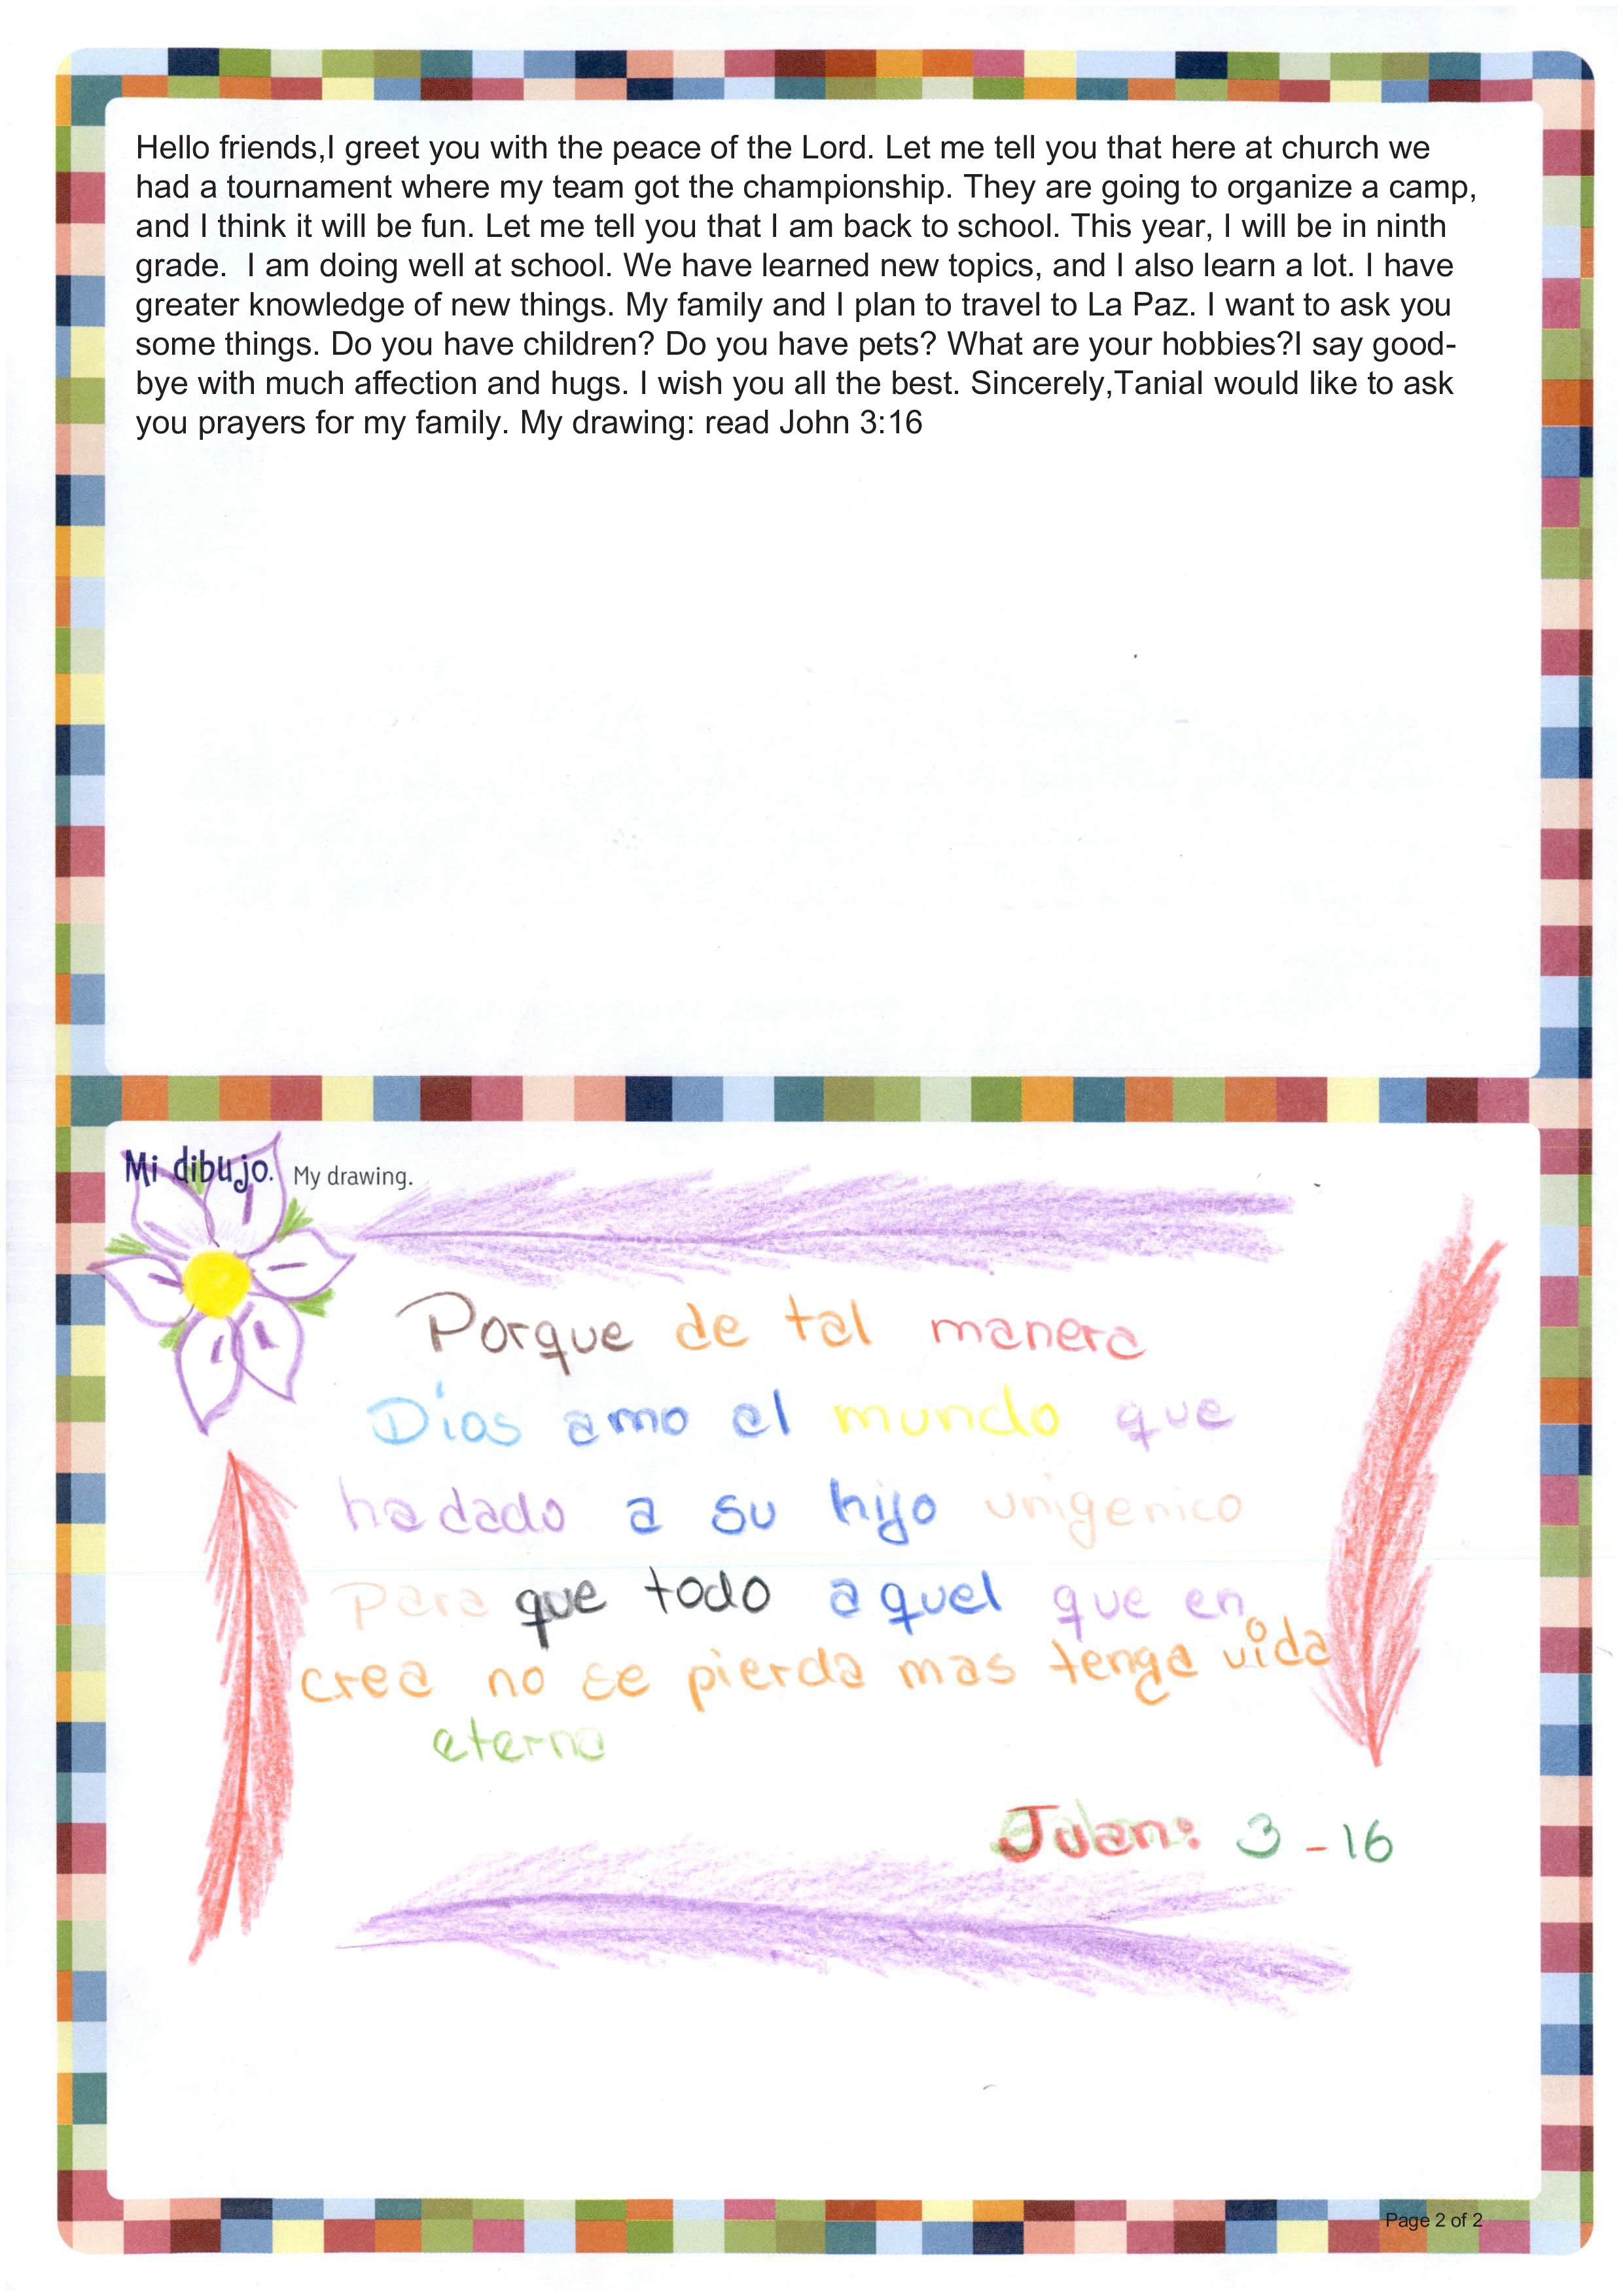 Hello friends,I greet you with the peace of the Lord. Let me tell you that here at church we
had a tournament where my team got the championship. They are going to organize a camp,
and I think it will be fun. Let me tell you that I am back to school. This year, I will be in ninth
grade.  I am doing well at school. We have learned new topics, and I also learn a lot. I have
greater knowledge of new things. My family and I plan to travel to La Paz. I want to ask you
some things. Do you have children? Do you have pets? What are your hobbies?I say good-
bye with much affection and hugs. I wish you all the best. Sincerely,TaniaI would like to ask
you prayers for my family. My drawing: read John 3:16
Mi dibujo. My drawing.
Porque de tal manera
Dios amo al mundo que
ha dado a su hijo unigenico
Para que todo aquel que en
crea no se pierda mas tenga vida
eterna
Juan: 3-16
Page 2 of 2